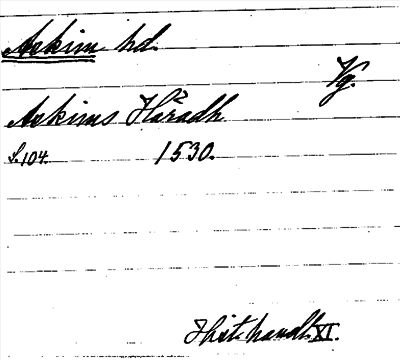 Askim hd.
Vg.
Askims Häradh
S. 104. 1530.
Hist. handl. XI.